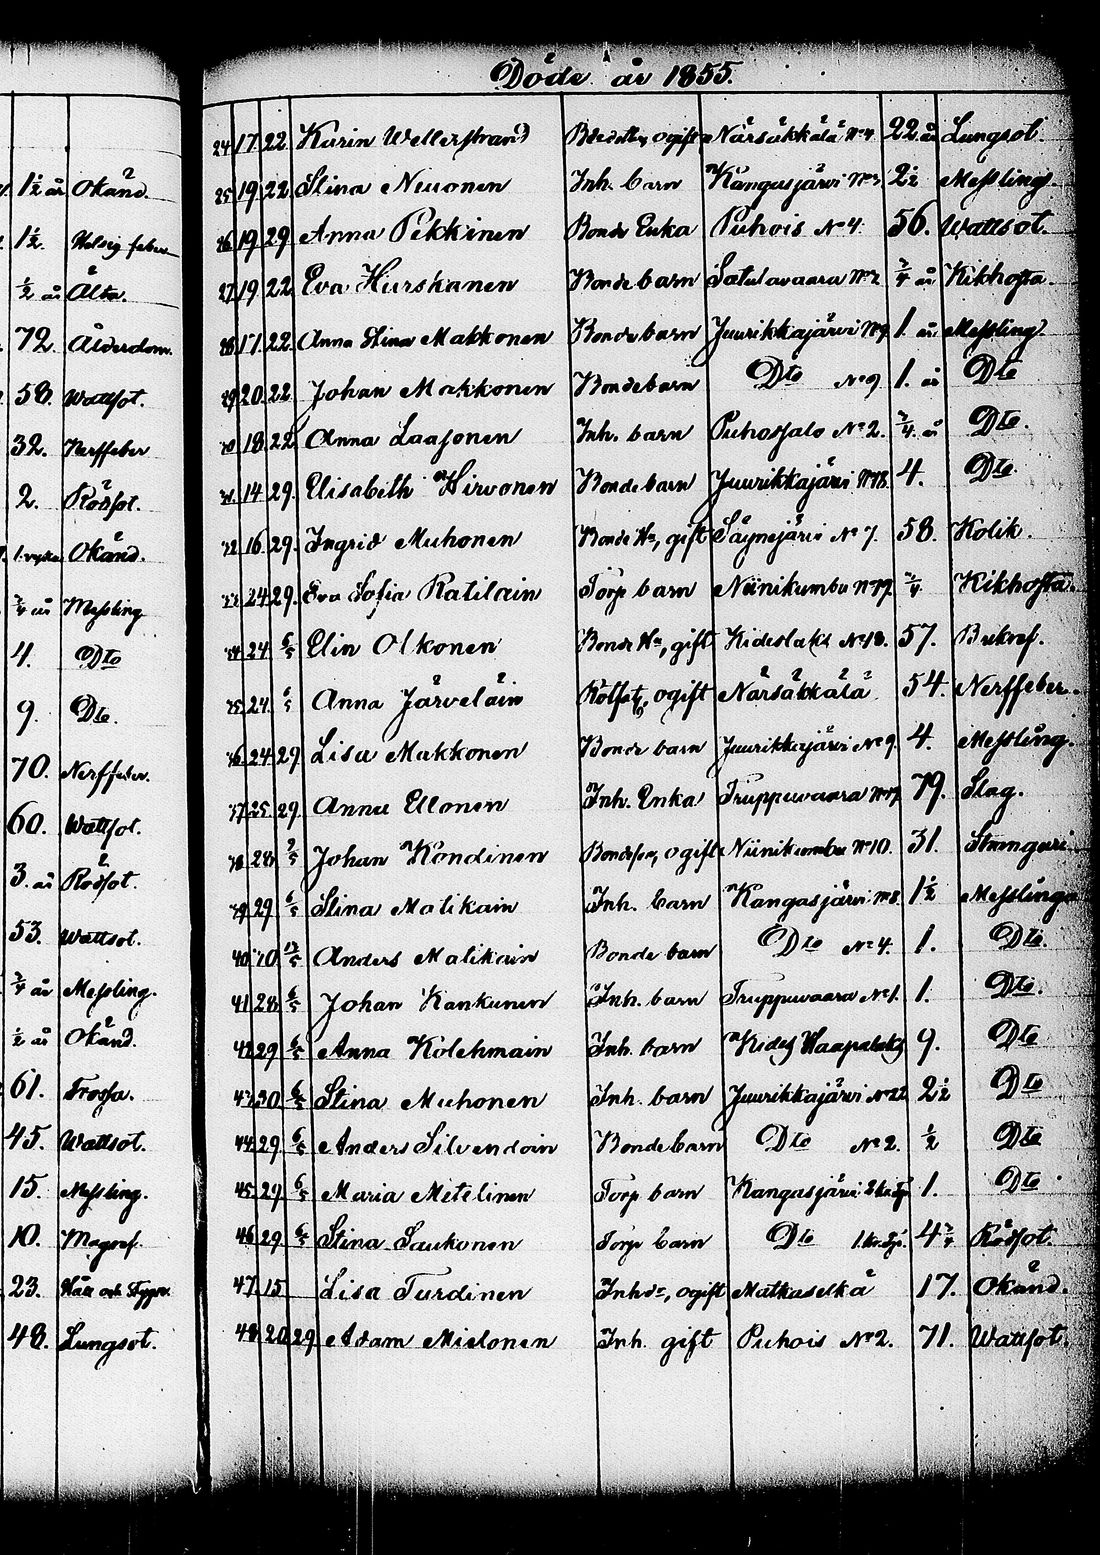 Döde år 1855.
1½ år Okänd.
1½. Helsig feber
½ år Älta.
72. Ålderdom.
58. Wattsot.
32. Nerffeber
2. Rödsot.
1. Okänd.
¾ år Messling
4. Dto
9. Dto.
70. Nerffeber.
60. Wattsot.
3. år Rödsot.
53. Wattsot.
¾ år Messling.
½ år Okänd.
61. Frossa.
45. Wattsot.
15. Messling.
10. Magref.
23. Håll och Stygn.
48. Lungsot.
24 17 22 Karin Wellerstrand ogift Närsäkkälä No 4. 22 år Lungsot.
25 19 22 Stina Neuonen Inh. barn Kangasjärvi 2½ Messling.
26 19 29 Anna Pekkinen Bonde Enka Puhois No 4. 56. Wattsot.
27 19 22 Eva Hurskanen Bonde barn Satulavaara No 2 ¾ år Kikhosta.
28 17 22 Anna Stina Makkonen Bonde barn Juurikkajärvi No 9. 1. år Messling.
29 20. 22 Johan Makkonen Bondebarn Dto No 9 1. år Dto
30 18 22 Anna Laasonen Inh. barn Puhossalo No 2. ¾. år Dto.
31 14 29. Elisabeth Hirvonen Bonde barn Juurikkajärvi No 18. 4. Dto
32 16 29. Ingrid Muhonen Bonde Hu, gift Säynejärvi No 7. 58. Kolik.
33 24 29. Eva Sofia Ratilain Torp barn Niinikumbu No 19. ¾ Kikhosta.
34 24 6/5 Elin Olkonen Bonde Hu, gift Kideslaks No 18. 57. Bukref.
35 24. 6/5 Anna Järveläin ogift Närsäkkälä 54. Nerffeber.
36 24 29 Lisa Makkonen Bonde barn Juurikkajärvi No 9. 4. Messling.
37 25. 29 Anna Ellonen Inh. Enka Truppuvaara No 19 79. Slag.
38 28 6/5 Johan Kondinen Bondeson, ogift Niinikumbu No 10. 31.
39 29 6/5 Stina Malikain Inh. barn Kangasjärvi No 8. 1½ Messling
40 10 13/5 Anders Malikain Bonde barn Dto No 4. 1. Dto.
41 28 6/5 Johan Kankunen Inh. barn Truppuvaara No 1. 1. Dto.
42 29 6/5 Anna Kolehmain Inh. barn Kides Haapalaks 9. Dto
43 30 6/5 Stina Muhonen Inh. barn Juurikkajärvi No 22 2½ Dto
44 29 6/5 Anders Silvendoin Bonde barn Dto No 2. ½ Dto
45 29 6/5 Maria Metelinen Torp barn Kangasjärvi 1. Dto
46 29 6/5 Stina Saukonen Torp barn Dto 4¾ Rödsot.
47. 15 Lisa Turdinen ogift Matkaselkä 17. Okänd.
48. 20 29. Adam Mielonen Inh. gift Puhois No 2. 71. Wattsot.